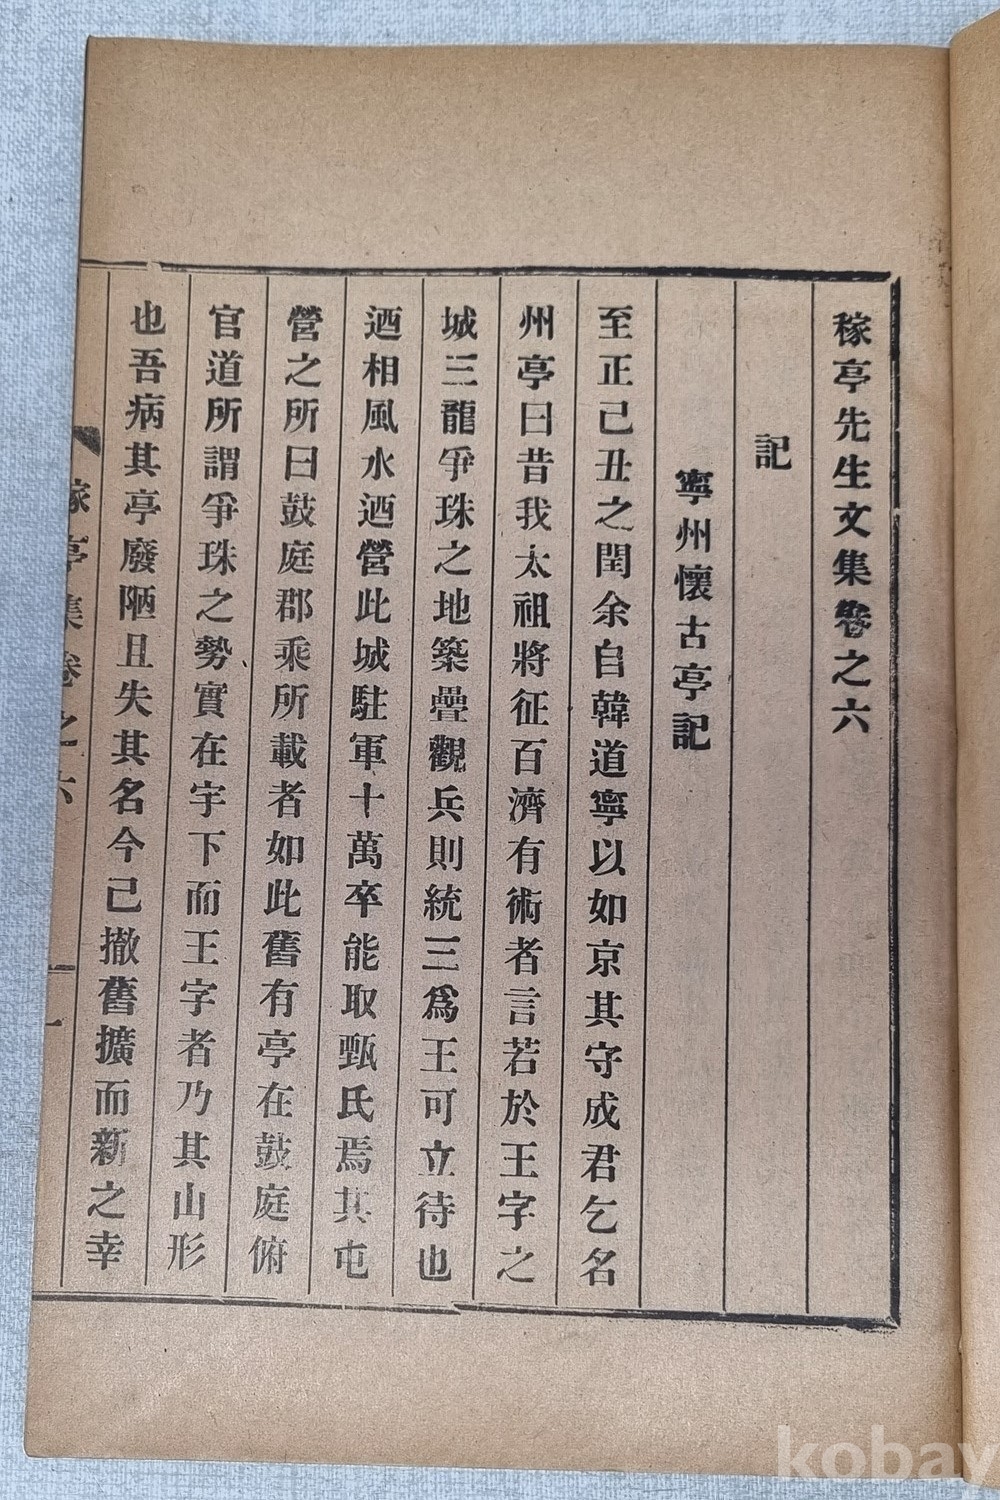 稼亭先生文集卷之六
記
寧州懷古亭記
至正己丑之閏余自韓道寧以如京其守成君乞名
州亭曰昔我太祖將征百濟有術者言若於王字之
城三龍爭珠之地築疊觀兵則統三爲王可立待也
迺相風水迺營此城駐軍十萬卒能取甄氏焉其屯
營之所曰鼓庭郡乘所載者如此舊有亭在鼓庭俯
官道所謂爭珠之勢實在宇下而王字者乃其山形
也吾病其亭廢陋且失其名今己撤舊擴而新之幸
稼亭集卷之六
一
kobay